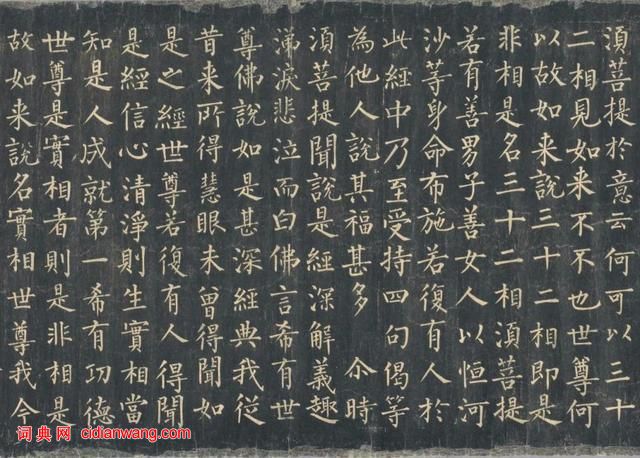 須菩提於意云何可以三十
二相見如来不不也世尊何
以故如来說三十二相即是
非相是名三十二相須菩提
若有善男子善女人以恒河
沙等身命布施若復有人於
此經中乃至受持四句偈等
為他人說其福甚多 尒時
須菩提聞說是經深解義趣
涕淚悲泣而白佛言希有世
尊佛說如是甚深經典我從
昔来所得慧眼未曾得聞如
是之經世尊若復有人得聞
是經信心清淨則生實相當
知是人成就第一希有功德
世尊是實相者則是非相是
故如来說名實相世尊我今
词典网 cidianwang.com